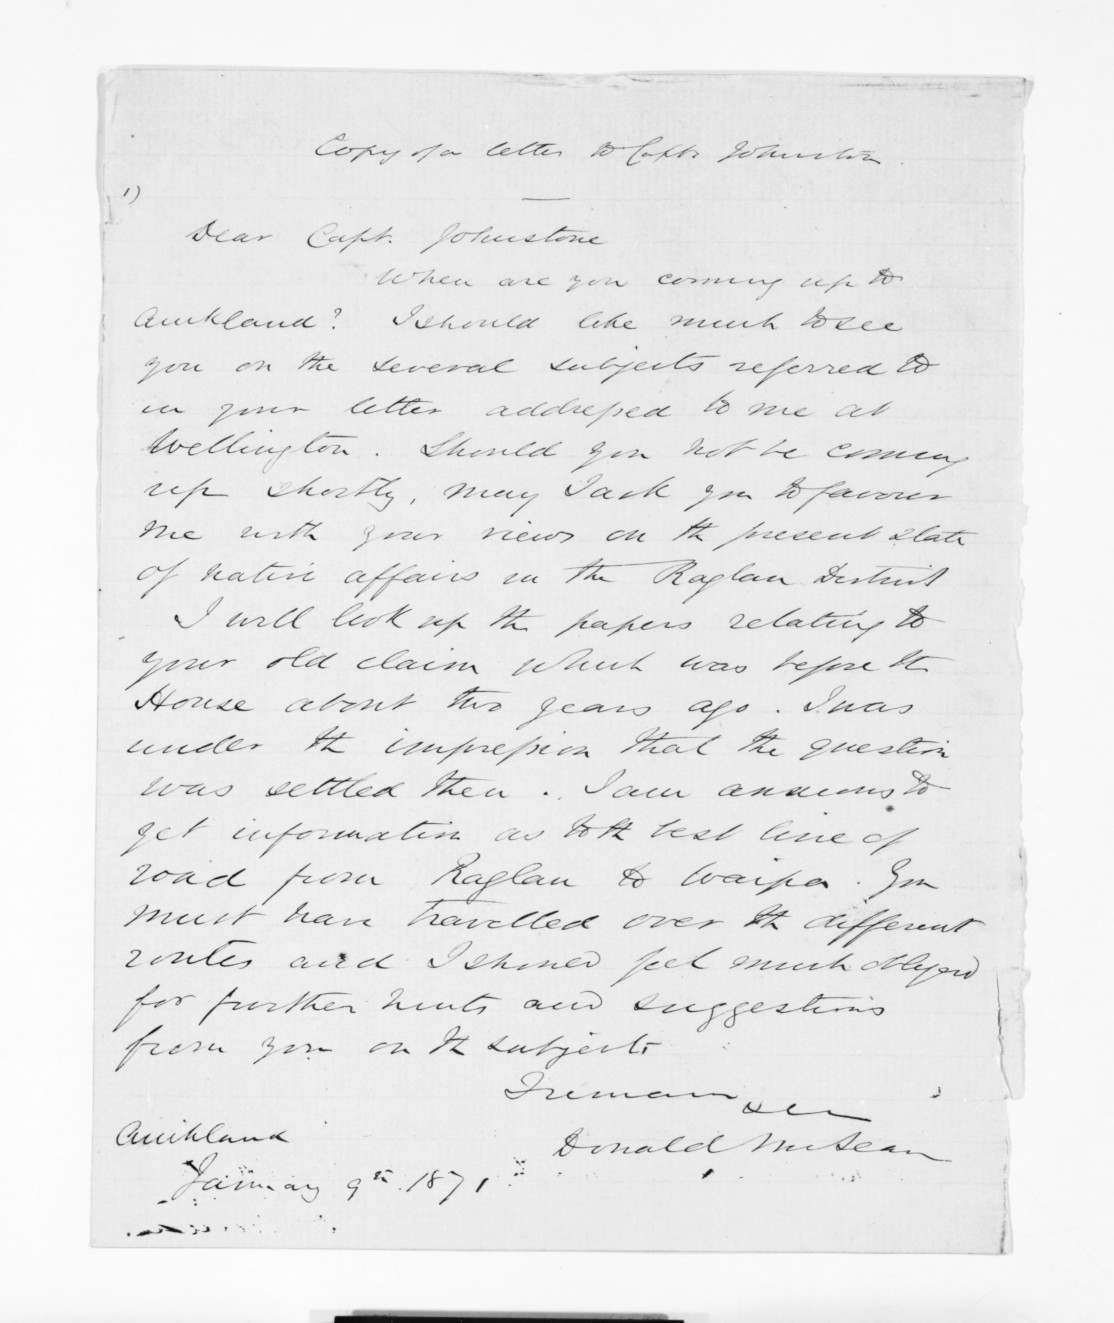 Copy of a letter to Capt. Johnston
1)
Dear Capt. Johnstone
When are you coming up to
Auckland? I should like much to see
you on the several subjects referred to
in your letter addressed to me at
Wellington. Should you not be coming
up shortly, may I ask you to favour
me with your views on the present state
of native affairs in the Raglan District
I will look up the papers relating to
your old claim which was before the
House about two years ago. I was
under the impression that the question
was settled then. I am anxious to
get information as to the best line of
road from Raglan to Waipa. You
must have travelled over the different
routes and I should feel much obliged
for further hints and suggestions
from you on the subjects
I remain
Donald McLean
Auckland
January 9th 1871